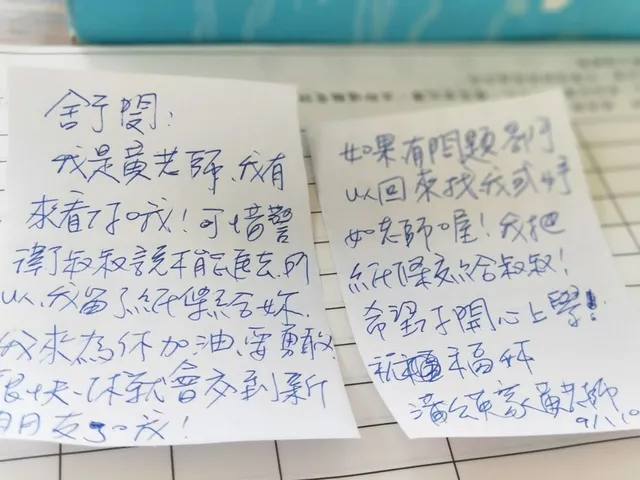 舒閔：
我是黃老師、我有
來看你哦！可惜警
衛叔叔說不能進去、所
以、我留了紙條給妳、
我來為你加油、要勇敢、
很快、你就會交到新
朋友了哦！
如果有問題都可
以回來找我或婷
如老師喔！我把
紙條交給叔叔！
希望你開心上學！
祝福妳
黃老師
9/1、10